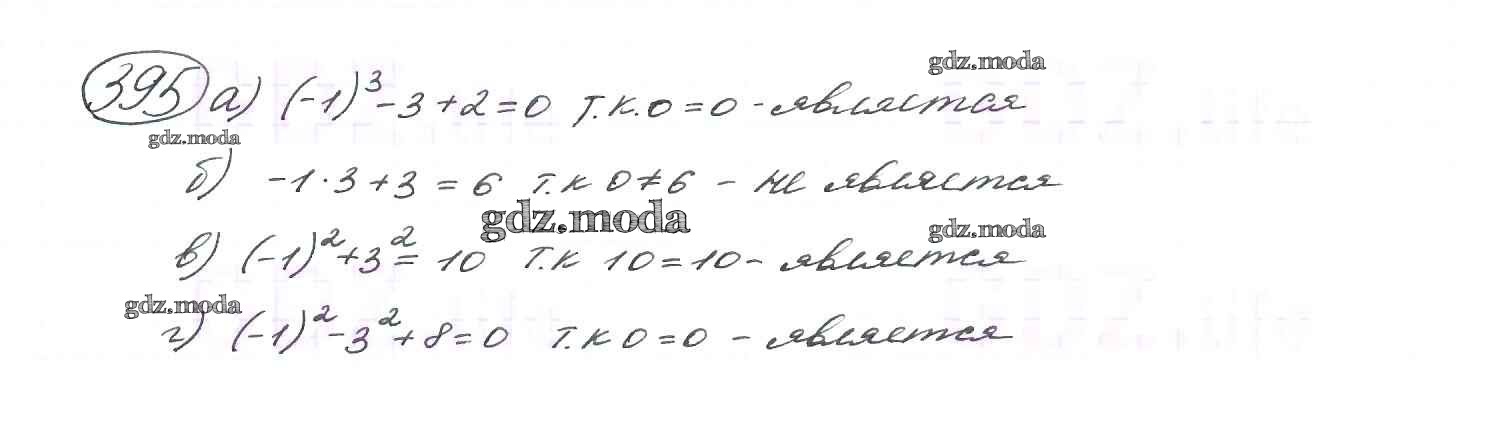 gdz.moda
395 а) (-1)³ - 3 + 2 = 0 т.к. 0 = 0 - является
gdz.moda
б) -1 · 3 + 3 = 6 т.к 0 ≠ 6 - не является
gdz.moda gdz.moda
в) (-1)² + 3² = 10 т.к 10 = 10 - является
gdz.moda
г) (-1)² - 3² + 8 = 0 т.к 0 = 0 - является